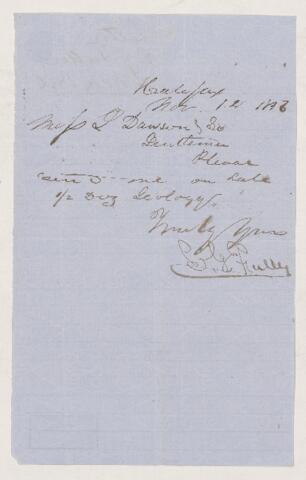 Halifax
Nov. 12 18
Mess Dawson &
Gentlemen
Please
send me on
1/2 Doz Geology
Truly Yours
Fuller